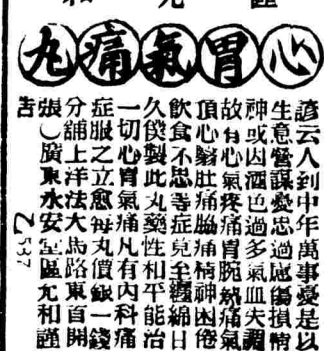 心胃氣痛丸
諺云人到中年萬事憂是以
生意營謀憂忠過慮傷損精
神或因酒色過多氣血失調
故有心氣疼痛胃脘熱痛氣
頂心腦肚痛腸痛精神困倦
飲食不思等症見至纏綿日
久僕製此丸藥性和平能治
一切心胃氣痛凡有內科痛
症服之立愈每丸價銀一錢
分舖上洋法大馬路東首開
張〇廣東永安堂區允和謹
告 乙537